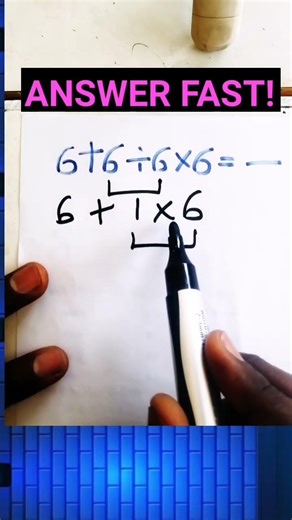 ANSWER FAST!
6+6÷6×6=—
6 + 1 × 6